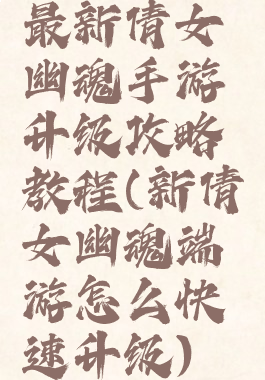 最新倩女
幽魂手游
升级攻略
教程(新倩
女幽魂端
游怎么快
速升级)